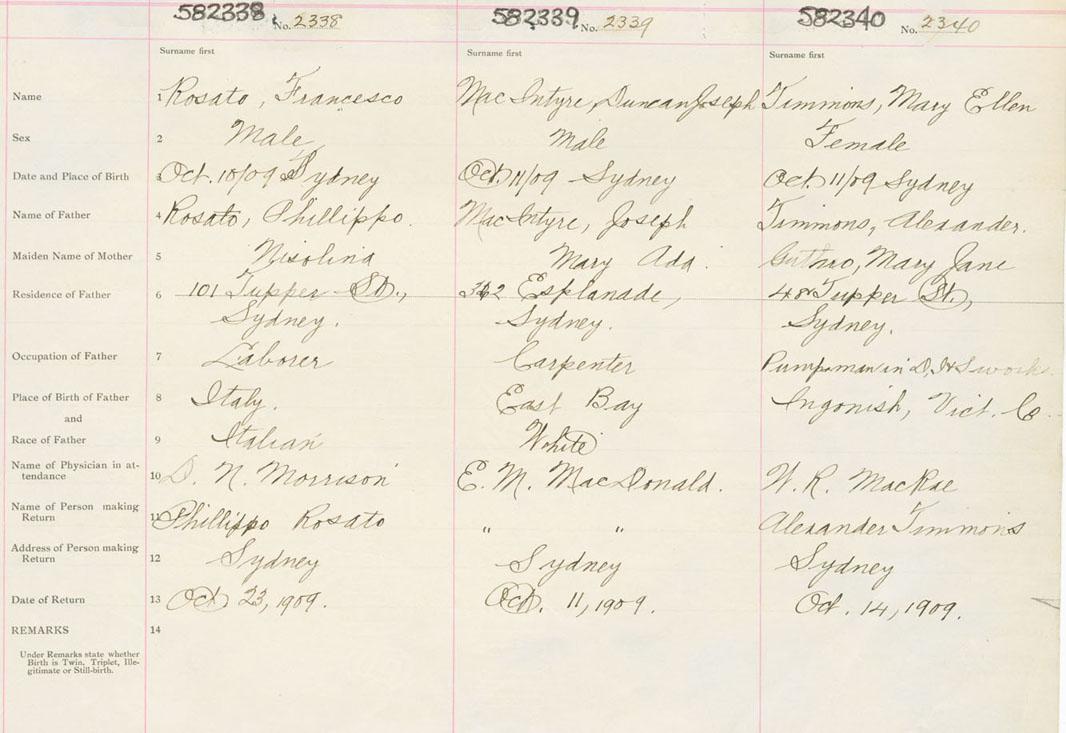 582338 No. 2338 582339 No. 2339 582340 No. 2340
Surname first Surname first Surname first
Name 1 Rosato, Francesco MacIntyre, Duncan Joseph Timmons, Mary Ellen
Sex 2 Male Male Female
Date and Place of Birth 3 Oct. 10/09 Sydney Oct. 11/09 Sydney Oct. 11/09 Sydney
Name of Father 4 Rosato, Phillippo. MacIntyre, Joseph Timmons, Alexander.
Maiden Name of Mother 5 Nisolina Mary Ada. Guthro, Mary Jane
Residence of Father 6 101 Tupper St., Esplanade, 48 Tupper St.,
Sydney. Sydney. Sydney.
Occupation of Father 7 Laborer Carpenter Pumpman in D, I & S works
Place of Birth of Father 8 Italy. East Bay Ingonish, Vict. Co
and
Race of Father 9 Italian White
Name of Physician in at-
tendance 10 D. N. Morrison E. M. MacDonald. W. R. MacRae
Name of Person making
Return 11 Phillippo Rosato " " Alexander Timmons
Address of Person making
Return 12 Sydney Sydney Sydney
Date of Return 13 Oct 23, 1909. Oct. 11, 1909. Oct. 14, 1909.
REMARKS 14
Under Remarks state whether
Birth is Twin, Triplet, Ille-
gitimate or Still-birth.